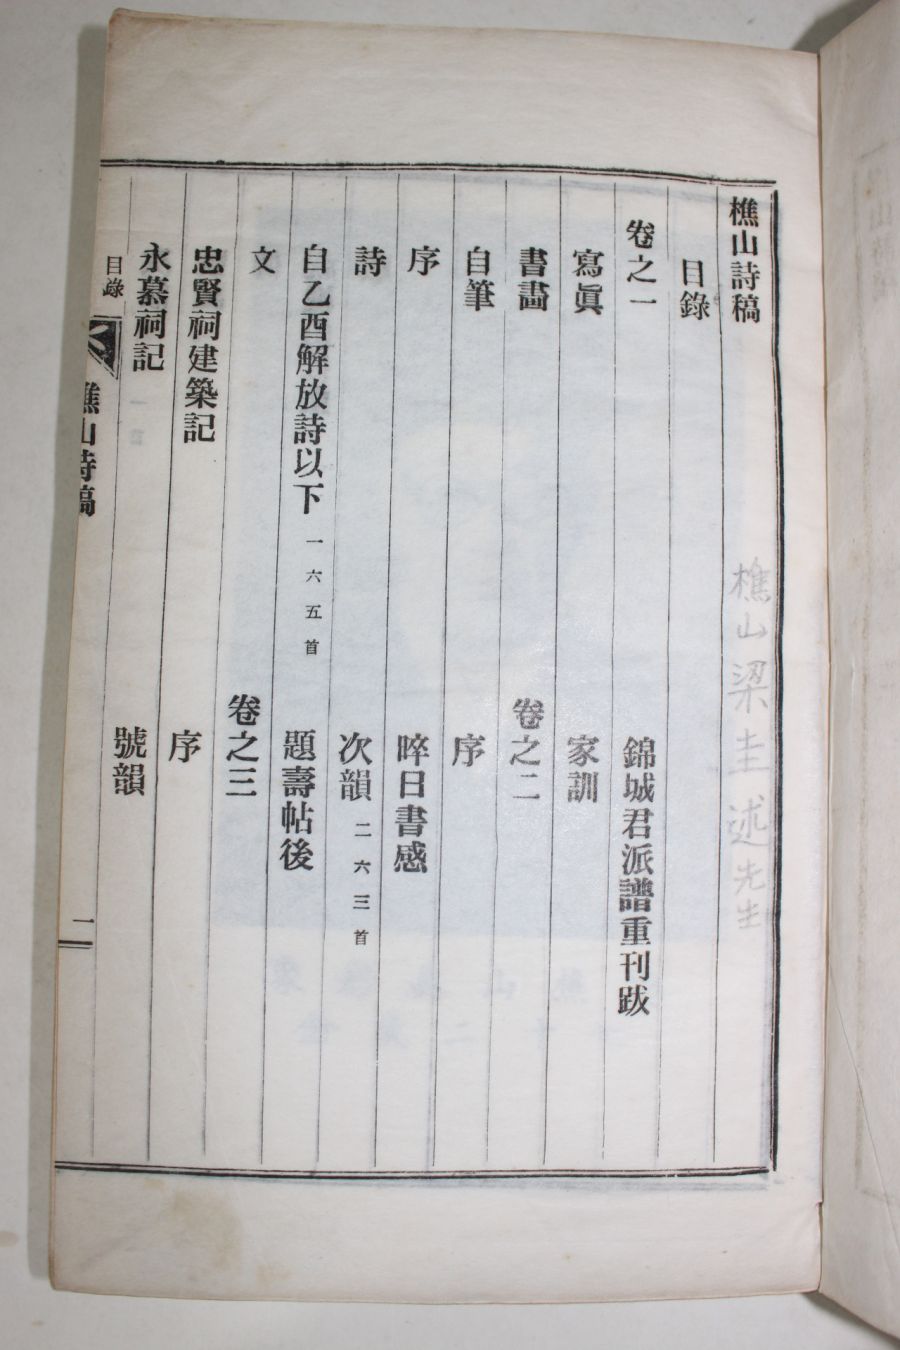 樵山詩稿
目錄
卷之一
寫眞
書畵
自筆
序
詩
自乙酉解放詩以下 一六五首
文
忠賢祠建築記
永慕祠記
錦城君派譜重刊跋
家訓
卷之二
序
晬日書感
次韻 二六三首
題壽帖後
卷之三
序
號韻
目錄
樵山詩稿
一
樵山梁圭述先生